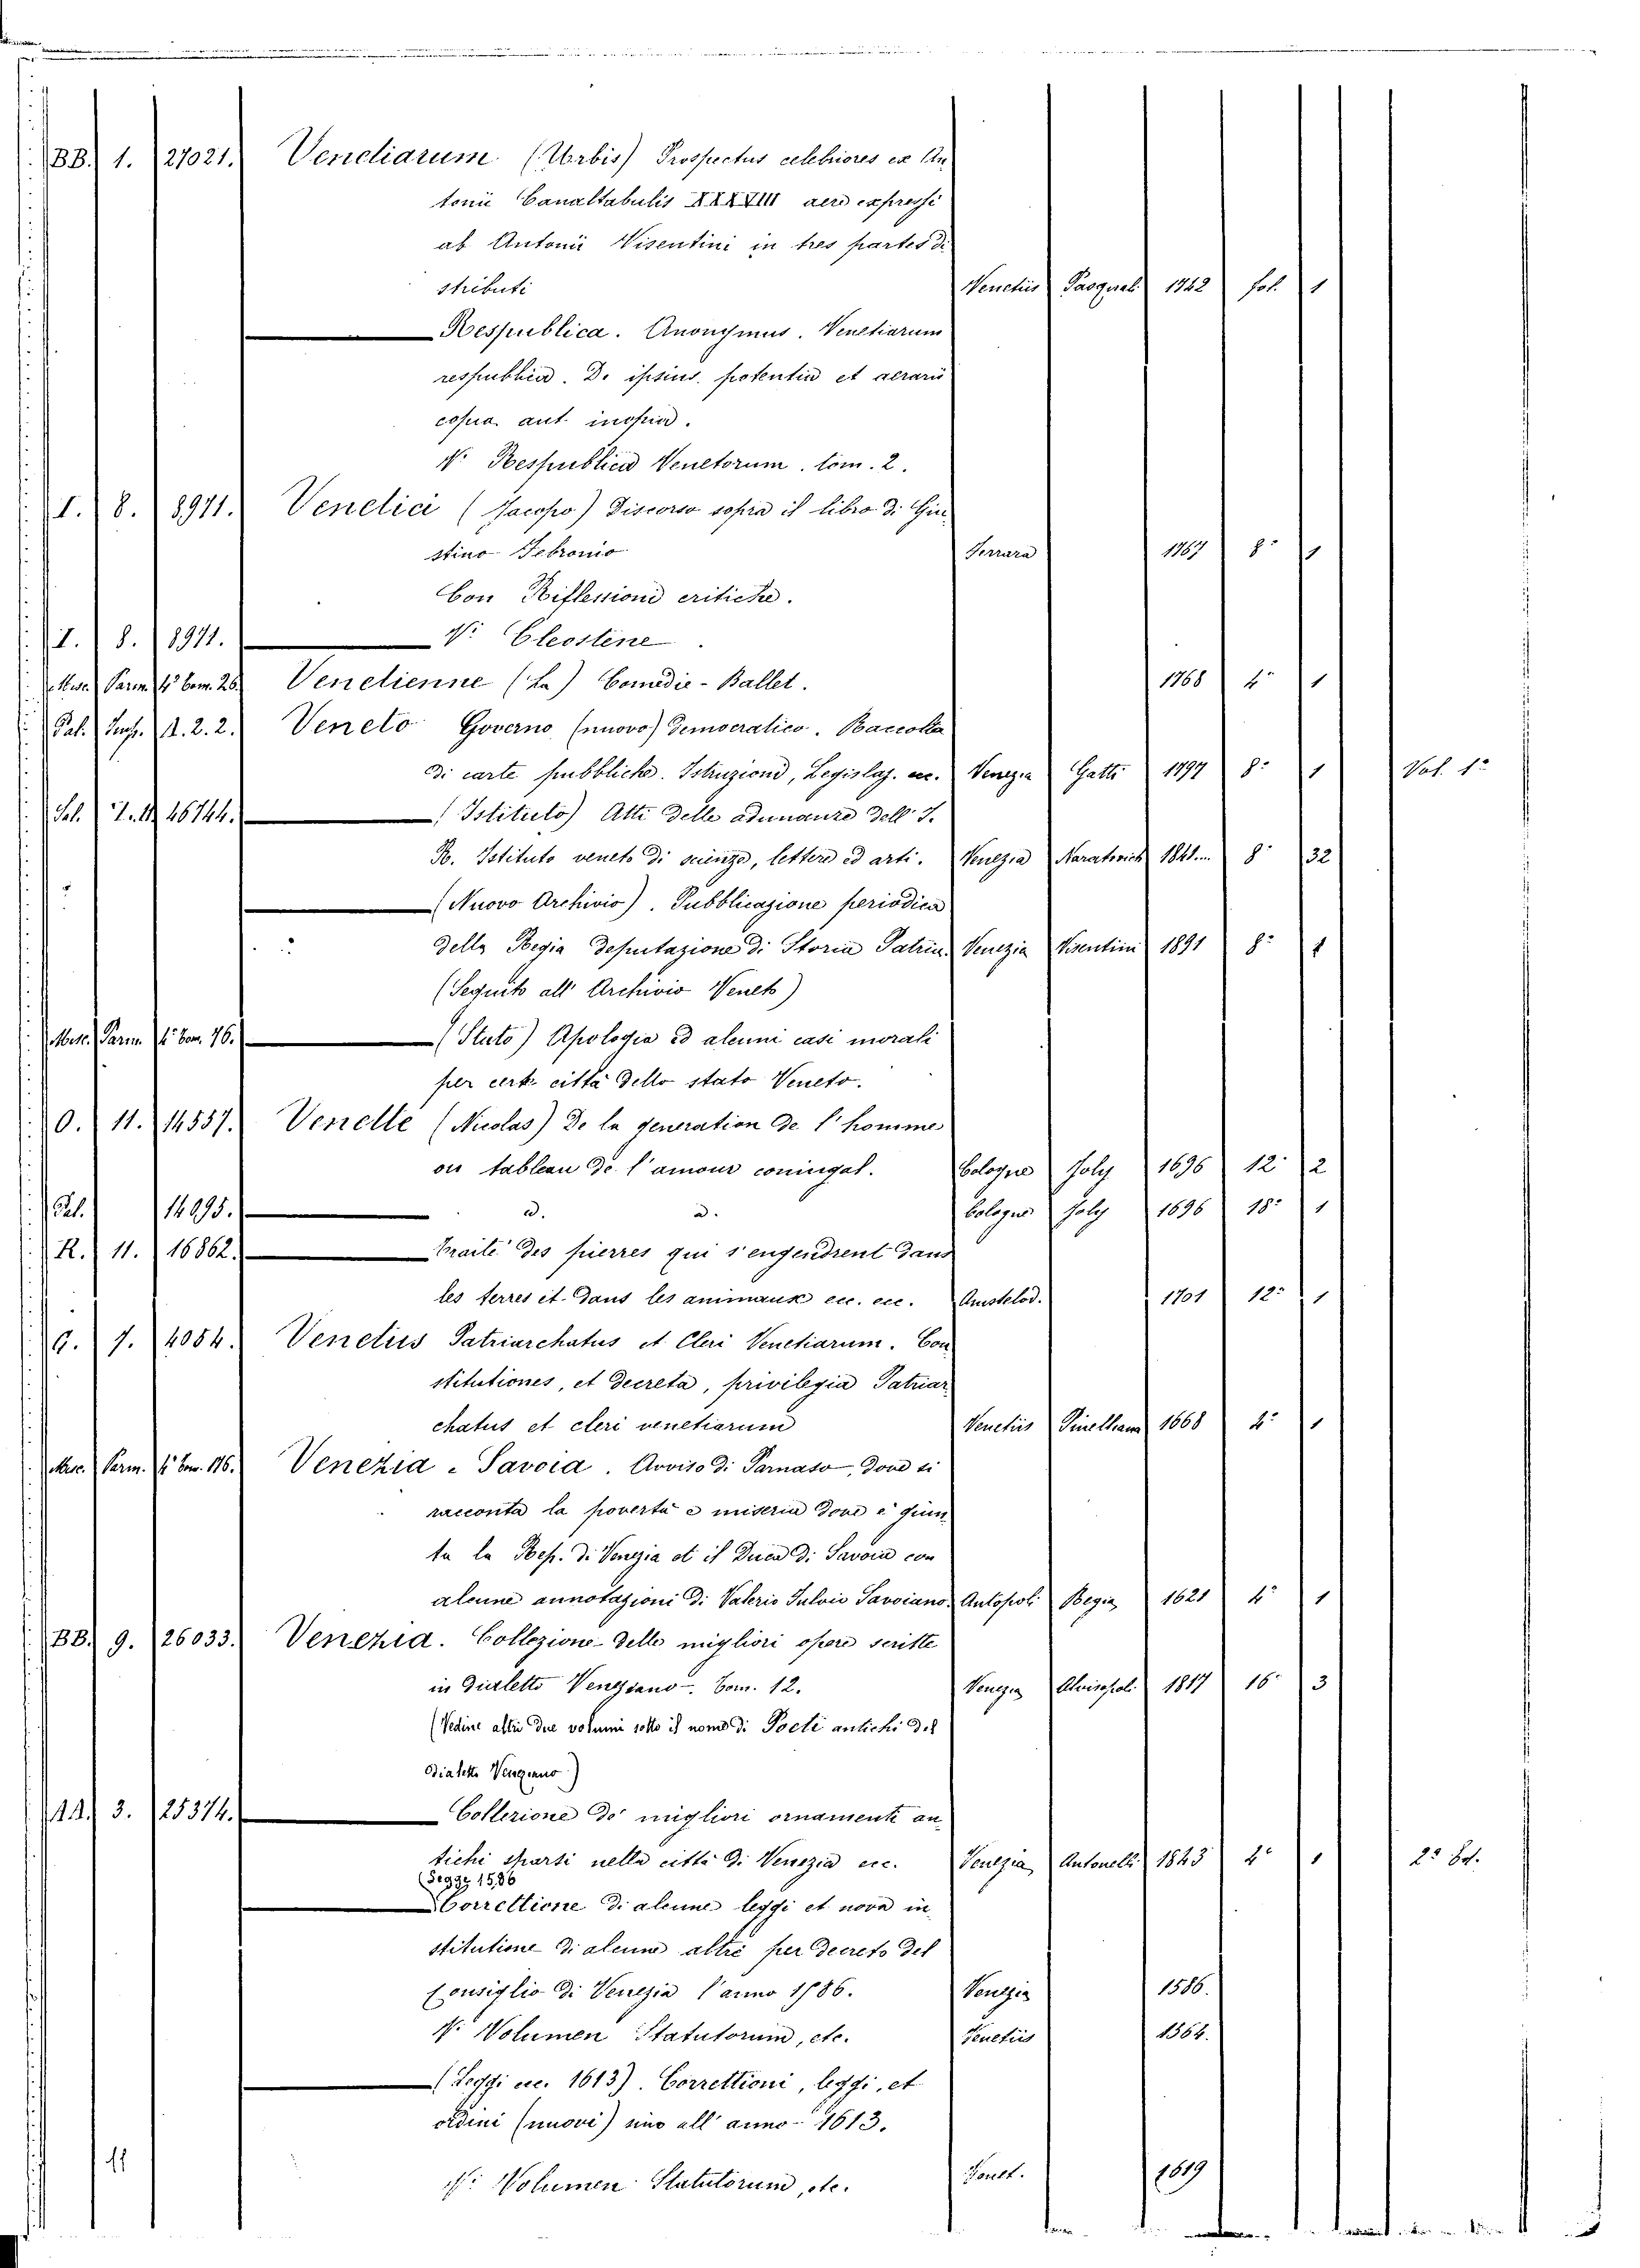 BB. 1. 27021. Venetiarum (Urbis) Prospectus celebriores ex An
tonii Canaltabulis XXXVIII aere expressi
ab Antonii Visentini in tres partes di
stributi Venetiis Pasquali 1742 fol. 1
Respublica. Anonymus. Venetiarum
respublica. De ipsius potentia et aerarii
copia aut inopia.
V. Respublica Venetorum. tom. 2.
I. 8. 8971. Venetici (Jacopo) Discorso sopra il libro di Giu
stino Febronio Ferrara 1767 8° 1
Con Riflessioni critiche.
I. 8. 8971. V. Cleostene.
Misc. Parm. 4° tom. 26. Venetienne (La) Comedie-Ballet. 1768 4° 1
Pal. Inf. A. 2. 2. Veneto Governo (nuovo) Democratico. Raccolta
di carte pubbliche. Istruzioni, Legislaz. ec. Venezia Gatti 1797 8° 1 Vol. 1°
Sal. 46744. (Istituto) Atti delle adunanze dell' I.
R. Istituto veneto di scienze, lettere ed arti. Venezia Naratovich 1841... 8° 32
(Nuovo Archivio). Pubblicazione periodica
della Regia Deputazione di Storia Patria. Venezia Visentini 1891 8° 1
(Seguito all' Archivio Veneto)
Misc. Parm. 4° tom. 76. (Stato) Apologia ed alcuni casi morali
per certe città dello stato Veneto.
O. 11. 14557. Venette (Nicolas) De la generation de l'homme
ou tableau de l'amour coniugal. Cologne Joly 1696 12° 2
Pal. 14995. id. id. Cologne Joly 1696 18° 1
R. 11. 16862. Traité des pierres qui s'engendrent dans
les terres et dans les animaux ecc. ecc. Amstelod. 1701 12° 1
G. 7. 4054. Venetiis Patriarchatus et Cleri Venetiarum. Con
stitutiones, et decreta, privilegia Patriar
chatus et cleri venetiarum Venetiis Pinelliana 1668 4° 1
Misc. Parm. 4° tom. 116. Venezia - Savoia. Avviso di Parnaso, dove si
racconta la povertà e miseria dove è giun
ta la Rep. di Venezia et il Duca di Savoia con
alcune annotazioni di Valerio Fulvio Savoiano. Antopoli Regia 1621 4° 1
BB. 9. 26033. Venezia. Collezione delle migliori opere scritte
in Dialetto Veneziano. Tom. 12. Venezia Alvisopoli 1817 16° 3
(Vedine altri due volumi sotto il nome di Poeti antichi del
Dialetto Veneziano)
AA. 3. 25374. Collezione de' migliori ornamenti an
tichi sparsi nella città di Venezia ecc. Venezia Antonelli 1843 2° 1
(Legge 1586
Correttione di alcune leggi et nova in
stitutione di alcune altre per decreto del
Consiglio di Venezia l'anno 1586. Venezia 1586.
V. Volumen Statutorum, etc. Venetiis 1564.
(Leggi ecc. 1613). Correttioni, leggi, et
ordini (nuovi) sino all' anno 1613.
V. Volumen Statutorum, etc. Venet. 1619